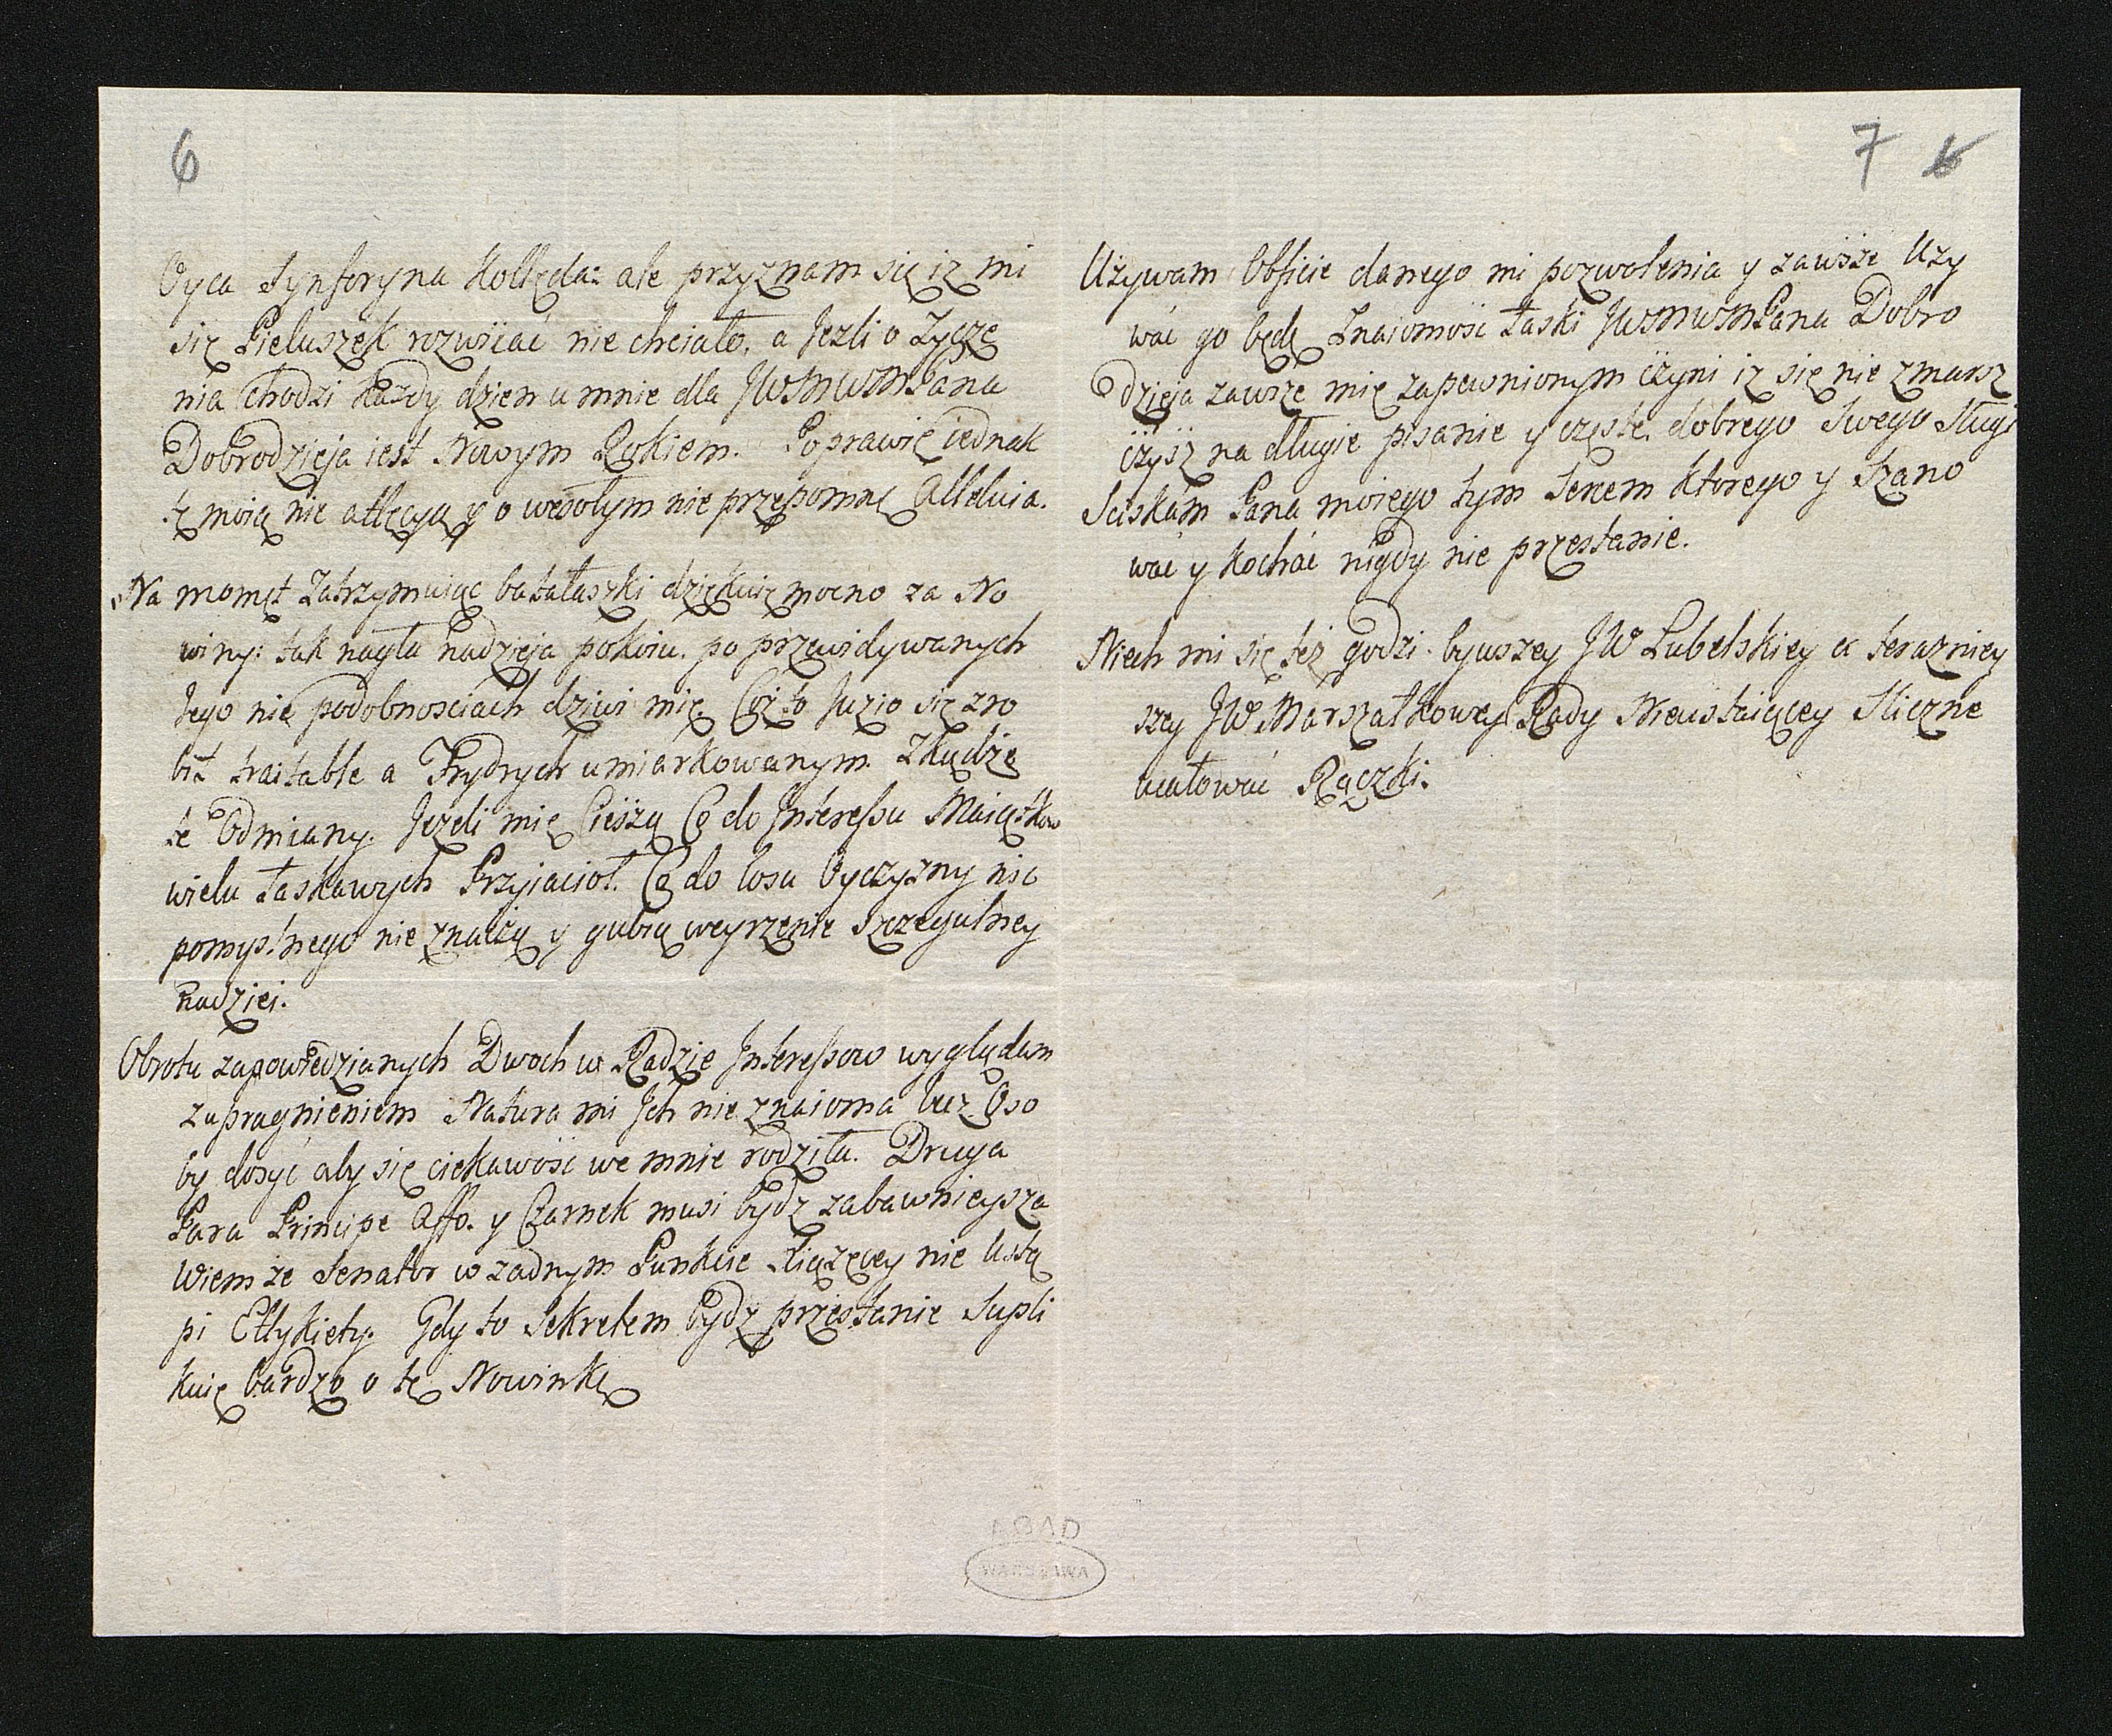 6
Oyca Synforyna Kollęda: ale przyznam się iz mi
się Pieluszek rozwiiać nie chciało, a Jezli o Zycze
nia chodzi kazdy dzien u mnie dla JWWMPana
Dobrodzieja iest Nowym Rokiem. Poprawię iednak
tę moię nie atlęcyą y o wesołym nie przepomnę Alleluia.
Na momęt Zatrzymuiąc batałaszki dziękuię mocno za No
winy: tak nagła nadzieja pokoiu. po przewidywanych
Jego nie podobnosciach dziwi mię. Coż to Juzio się zro
bił traitable a Frydrych umiarkowanym. Zkądże
te Odmiany. Jezeli mię Cieszą Co do Interessu Maiątkow
wielu łaskawych Przyiacioł. Co do losu Oyczyzny nic
pomyslnego nie znaczą y gubią weyrzenie szczegulney
nadziei.
Obrotu zapowiedzianych Dwoch w Radzie Interessow wyglądam
z upragnieniem Natura mi Ich nie znaioma lecz Oso
by dosyć aby się ciekawość we mnie rodziła. Druga
Para Principe Affo. y Czarnek musi bydz zabawnieysza
Wiem że Senator w zadnym Punkcie Xiążęcey nie Ustą
pi Ettykiety. Gdy to Sekretem bydz przestanie Supli
kuię bardzo o tę Nowinkę
7 6
Używam Obficie danego mi pozwolenia y zawsze Uzy
wać go będę Znaiomość łaski JWWMPana Dobro
dzieja zawsze mię zapewnionym czyni iz się nie zmarsz
czysz na długie pisanie y częste. dobrego Swego Sługi
Sciskam Pana mojego tym Sercem ktorego y Szano
wać y Kochać nigdy nie przestanie.
Niech mi się też godzi. bywszey JW Lubelskiey a terazniey
szey JW Marszałkowey Rady Nieustaiącey Sliczne
ucałować Rączki.
AGAD
WARSZAWA